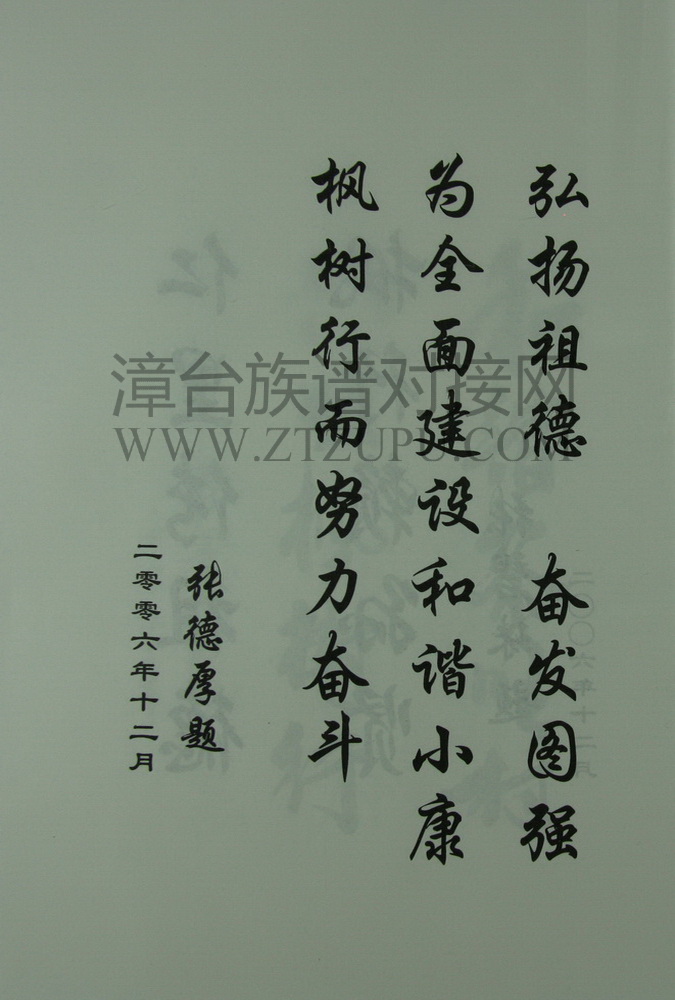 弘扬祖德 奋发图强
为全面建设和谐小康
枫树行而努力奋斗
张德厚题
二零零六年十二月
漳台族谱对接网
WWW.ZTZUPU.COM